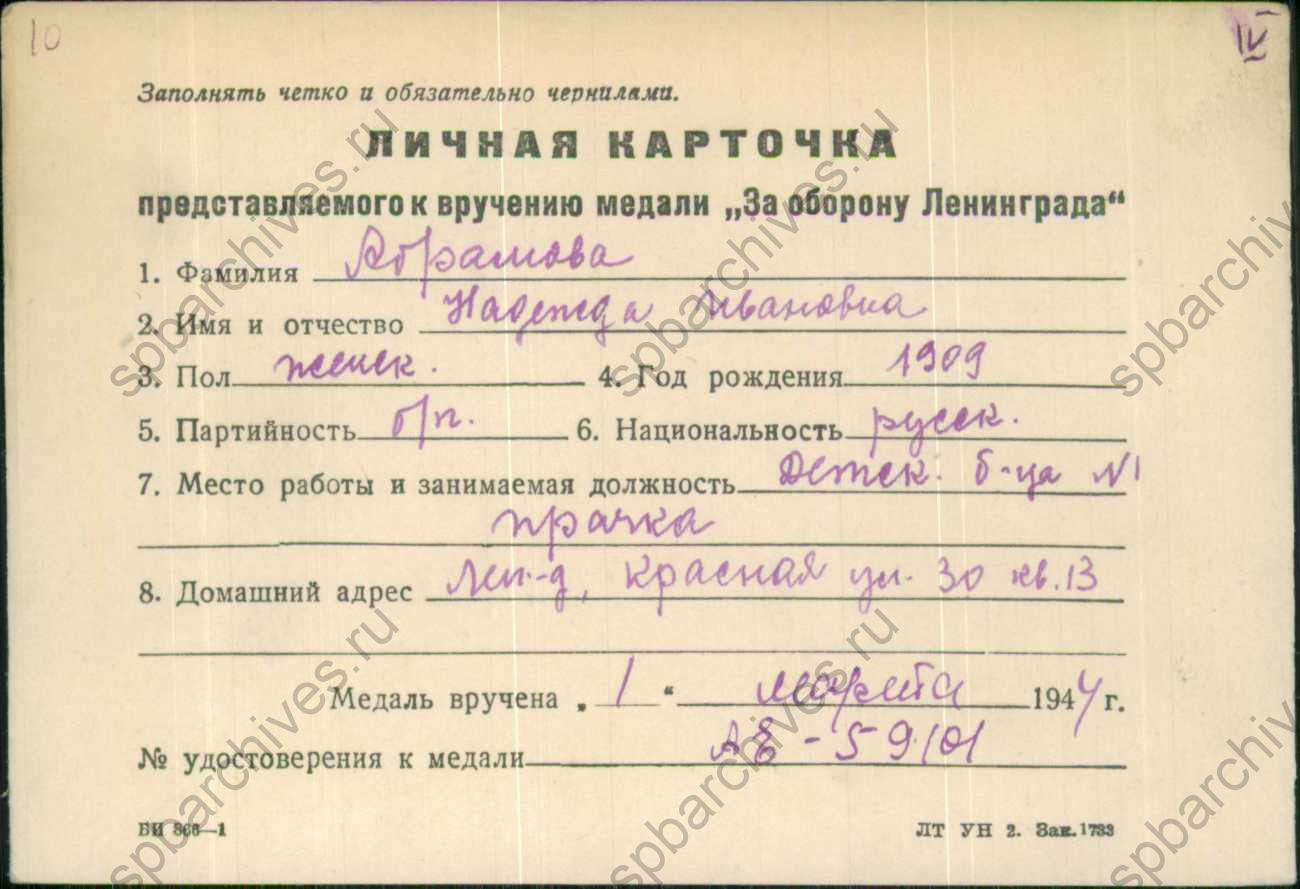 10
IV
Заполнять четко и обязательно чернилами.
ЛИЧНАЯ КАРТОЧКА
представляемого к вручению медали „За оборону Ленинграда“
1. Фамилия Абрамова
2. Имя и отчество Надежда Ивановна
3. Пол женск. 4. Год рождения 1909
5. Партийность б/п. 6. Национальность русск.
7. Место работы и занимаемая должность Детск. б-ца №1
прачка
8. Домашний адрес Лен-д, Красная ул. 30 кв. 13
Медаль вручена „1“ марта 1944 г.
№ удостоверения к медали АЕ - 59101
БИ 866—1
ЛТ УН 2. Зак. 1733
spbarchives.ru
spbarchives.ru
spbarchives.ru
spbarchives.ru
spbarchives.ru
spbarchives.ru